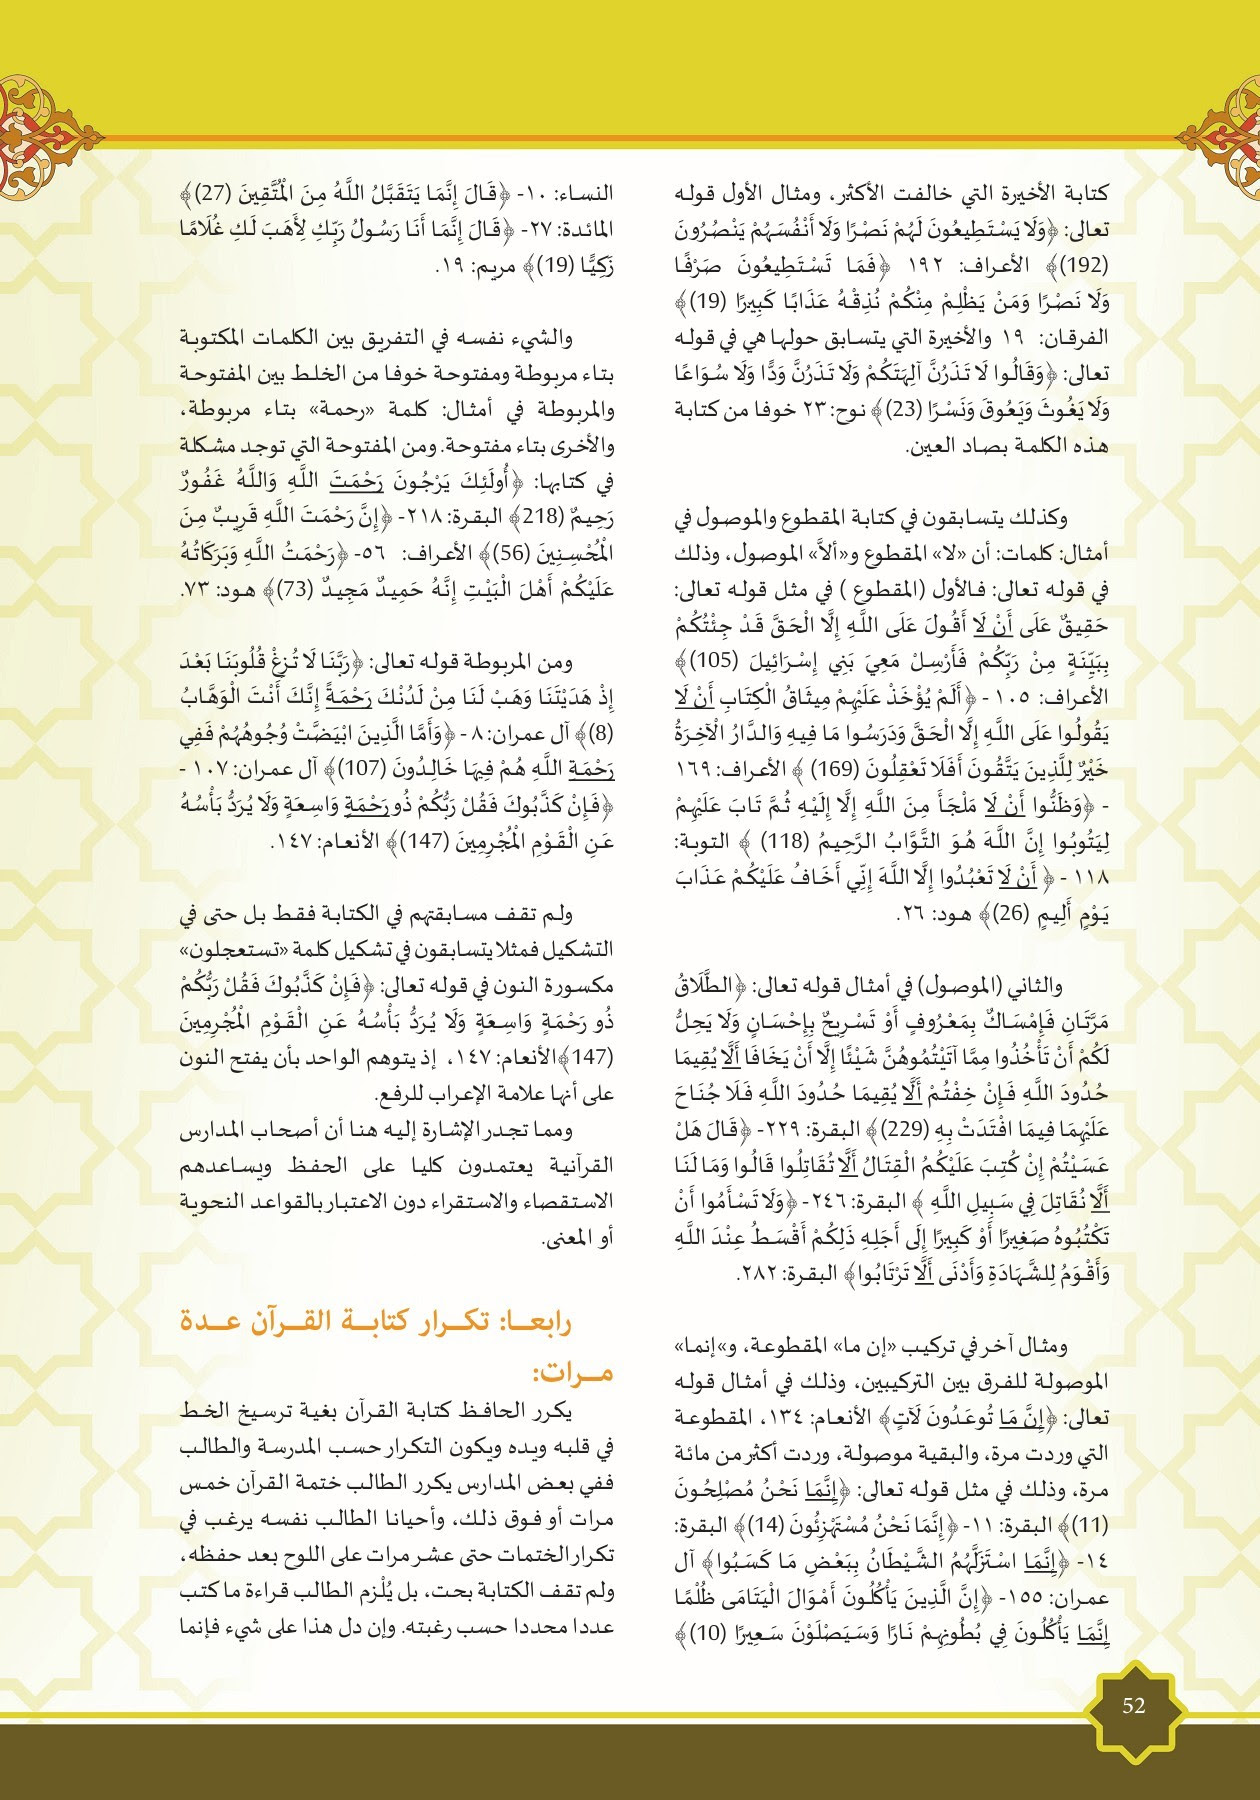 كتابة الأخيرة التي خالفت الأكثر، ومثال الأول قوله
تعالى: ﴿وَلَا يَسْتَطِيعُونَ لَهُمْ نَصْرًا وَلَا أَنْفُسَهُمْ يَنْصُرُونَ
(192)﴾ الأعراف: ١٩٢ ﴿فَمَا تَسْتَطِيعُونَ صَرْفًا
وَلَا نَصْرًا وَمَنْ يَظْلِمْ مِنْكُمْ نُذِقْهُ عَذَابًا كَبِيرًا (19)﴾
الفرقان: ١٩ والأخيرة التي يتسابق حولها هي في قوله
تعالى: ﴿وَقَالُوا لَا تَذَرُنَّ آلِهَتَكُمْ وَلَا تَذَرُنَّ وَدًّا وَلَا سُوَاعًا
وَلَا يَغُوثَ وَيَعُوقَ وَنَسْرًا (23)﴾ نوح: ٢٣ خوفا من كتابة
هذه الكلمة بصاد العين.
وكذلك يتسابقون في كتابة المقطوع والموصول في
أمثال: كلمات: أن «لا» المقطوع و«ألاَّ» الموصول، وذلك
في قوله تعالى: فالأول (المقطوع ) في مثل قوله تعالى:
حَقِيقٌ عَلَى أَنْ لَا أَقُولَ عَلَى اللَّهِ إِلَّا الْحَقَّ قَدْ جِئْتُكُمْ
بِبَيِّنَةٍ مِنْ رَبِّكُمْ فَأَرْسِلْ مَعِيَ بَنِي إِسْرَائِيلَ (105)﴾
الأعراف: ١٠٥ - ﴿أَلَمْ يُؤْخَذْ عَلَيْهِمْ مِيثَاقُ الْكِتَابِ أَنْ لَا
يَقُولُوا عَلَى اللَّهِ إِلَّا الْحَقَّ وَدَرَسُوا مَا فِيهِ وَالدَّارُ الْآخِرَةُ
خَيْرٌ لِلَّذِينَ يَتَّقُونَ أَفَلَا تَعْقِلُونَ (169) ﴾ الأعراف: ١٦٩
- ﴿وَظَنُّوا أَنْ لَا مَلْجَأَ مِنَ اللَّهِ إِلَّا إِلَيْهِ ثُمَّ تَابَ عَلَيْهِمْ
لِيَتُوبُوا إِنَّ اللَّهَ هُوَ التَّوَّابُ الرَّحِيمُ (118) ﴾ التوبة:
١١٨ - ﴿ أَنْ لَا تَعْبُدُوا إِلَّا اللَّهَ إِنِّي أَخَافُ عَلَيْكُمْ عَذَابَ
يَوْمٍ أَلِيمٍ (26)﴾ هود: ٢٦.
والثاني (الموصول) في أمثال قوله تعالى: ﴿الطَّلَاقُ
مَرَّتَانِ فَإِمْسَاكٌ بِمَعْرُوفٍ أَوْ تَسْرِيحٌ بِإِحْسَانٍ وَلَا يَحِلُّ
لَكُمْ أَنْ تَأْخُذُوا مِمَّا آتَيْتُمُوهُنَّ شَيْئًا إِلَّا أَنْ يَخَافَا أَلَّا يُقِيمَا
حُدُودَ اللَّهِ فَإِنْ خِفْتُمْ أَلَّا يُقِيمَا حُدُودَ اللَّهِ فَلَا جُنَاحَ
عَلَيْهِمَا فِيمَا افْتَدَتْ بِهِ (229)﴾ البقرة: ٢٢٩- ﴿قَالَ هَلْ
عَسَيْتُمْ إِنْ كُتِبَ عَلَيْكُمُ الْقِتَالُ أَلَّا تُقَاتِلُوا قَالُوا وَمَا لَنَا
أَلَّا نُقَاتِلَ فِي سَبِيلِ اللَّهِ ﴾ البقرة: ٢٤٦- ﴿وَلَا تَسْأَمُوا أَنْ
تَكْتُبُوهُ صَغِيرًا أَوْ كَبِيرًا إِلَى أَجَلِهِ ذَلِكُمْ أَقْسَطُ عِنْدَ اللَّهِ
وَأَقْوَمُ لِلشَّهَادَةِ وَأَدْنَى أَلَّا تَرْتَابُوا﴾ البقرة: ٢٨٢.
ومثال آخر في تركيب «إن ما» المقطوعة، و»إنما»
الموصولة للفرق بين التركيبين، وذلك في أمثال قوله
تعالى: ﴿إِنَّ مَا تُوعَدُونَ لَآتٍ﴾ الأنعام: ١٣٤، المقطوعة
التي وردت مرة، والبقية موصولة، وردت أكثر من مائة
مرة، وذلك في مثل قوله تعالى: ﴿إِنَّمَا نَحْنُ مُصْلِحُونَ
(11)﴾ البقرة: ١١- ﴿إِنَّمَا نَحْنُ مُسْتَهْزِئُونَ (14)﴾ البقرة:
١٤- ﴿إِنَّمَا اسْتَزَلَّهُمُ الشَّيْطَانُ بِبَعْضِ مَا كَسَبُوا﴾ آل
عمران: ١٥٥- ﴿إِنَّ الَّذِينَ يَأْكُلُونَ أَمْوَالَ الْيَتَامَى ظُلْمًا
إِنَّمَا يَأْكُلُونَ فِي بُطُونِهِمْ نَارًا وَسَيَصْلَوْنَ سَعِيرًا (10)﴾
النساء: ١٠- ﴿قَالَ إِنَّمَا يَتَقَبَّلُ اللَّهُ مِنَ الْمُتَّقِينَ (27)﴾
المائدة: ٢٧- ﴿قَالَ إِنَّمَا أَنَا رَسُولُ رَبِّكِ لِأَهَبَ لَكِ غُلَامًا
زَكِيًّا (19)﴾ مريم: ١٩.
والشيء نفسه في التفريق بين الكلمات المكتوبة
بتاء مربوطة ومفتوحة خوفا من الخلط بين المفتوحة
والمربوطة في أمثال: كلمة «رحمة» بتاء مربوطة،
والأخرى بتاء مفتوحة. ومن المفتوحة التي توجد مشكلة
في كتابها: ﴿أُولَئِكَ يَرْجُونَ رَحْمَتَ اللَّهِ وَاللَّهُ غَفُورٌ
رَحِيمٌ (218)﴾ البقرة: ٢١٨- ﴿إِنَّ رَحْمَتَ اللَّهِ قَرِيبٌ مِنَ
الْمُحْسِنِينَ (56)﴾ الأعراف: ٥٦- ﴿رَحْمَتُ اللَّهِ وَبَرَكَاتُهُ
عَلَيْكُمْ أَهْلَ الْبَيْتِ إِنَّهُ حَمِيدٌ مَجِيدٌ (73)﴾ هود: ٧٣.
ومن المربوطة قوله تعالى: ﴿رَبَّنَا لَا تُزِغْ قُلُوبَنَا بَعْدَ
إِذْ هَدَيْتَنَا وَهَبْ لَنَا مِنْ لَدُنْكَ رَحْمَةً إِنَّكَ أَنْتَ الْوَهَّابُ
(8)﴾ آل عمران: ٨ - ﴿وَأَمَّا الَّذِينَ ابْيَضَّتْ وُجُوهُهُمْ فَفِي
رَحْمَةِ اللَّهِ هُمْ فِيهَا خَالِدُونَ (107)﴾ آل عمران: ١٠٧ -
﴿فَإِنْ كَذَّبُوكَ فَقُلْ رَبُّكُمْ ذُو رَحْمَةٍ وَاسِعَةٍ وَلَا يُرَدُّ بَأْسُهُ
عَنِ الْقَوْمِ الْمُجْرِمِينَ (147)﴾ الأنعام: ١٤٧.
ولم تقف مسابقتهم في الكتابة فقط بل حتى في
التشكيل فمثلا يتسابقون في تشكيل كلمة «تستعجلون»
مكسورة النون في قوله تعالى: ﴿فَإِنْ كَذَّبُوكَ فَقُلْ رَبُّكُمْ
ذُو رَحْمَةٍ وَاسِعَةٍ وَلَا يُرَدُّ بَأْسُهُ عَنِ الْقَوْمِ الْمُجْرِمِينَ
(147)﴾الأنعام: ١٤٧، إذ يتوهم الواحد بأن يفتح النون
على أنها علامة الإعراب للرفع.
ومما تجدر الإشارة إليه هنا أن أصحاب المدارس
القرآنية يعتمدون كليا على الحفظ ويساعدهم
الاستقصاء والاستقراء دون الاعتبار بالقواعد النحوية
أو المعنى.
رابعــا: تكــرار كتابــة القــرآن عــدة
مــرات:
يكرر الحافظ كتابة القرآن بغية ترسيخ الخط
في قلبه ويده ويكون التكرار حسب المدرسة والطالب
ففي بعض المدارس يكرر الطالب ختمة القرآن خمس
مرات أو فوق ذلك، وأحيانا الطالب نفسه يرغب في
تكرار الختمات حتى عشر مرات على اللوح بعد حفظه،
ولم تقف الكتابة بحت، بل يُلْزم الطالب قراءة ما كتب
عددا محددا حسب رغبته. وإن دل هذا على شيء فإنما
52